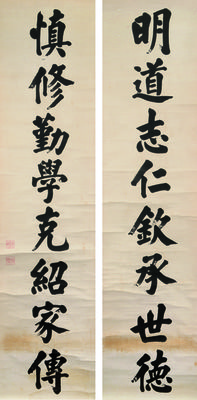 明道志仁欽承世德
慎修勤學克紹家傳